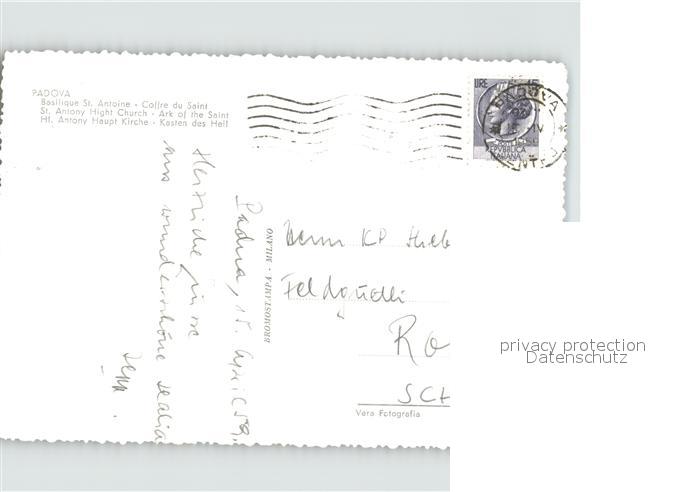 PADOVA
Basilique St. Antoine - Coffre du Saint
St. Antony Hight Church - Ark of the Saint
Hl. Antony Haupt Kirche - Kasten des Heil
LIRE 15
PADOVA
IV
REPVBBLICA
ITALIANA
Padua, 15. April 59.
Herzliche
wunderschöne Italia
Sepp.
BROMOSTAMPA - MILANO
Herrn KP
Ro
SCH
Vera Fotografia
privacy protection
Datenschutz